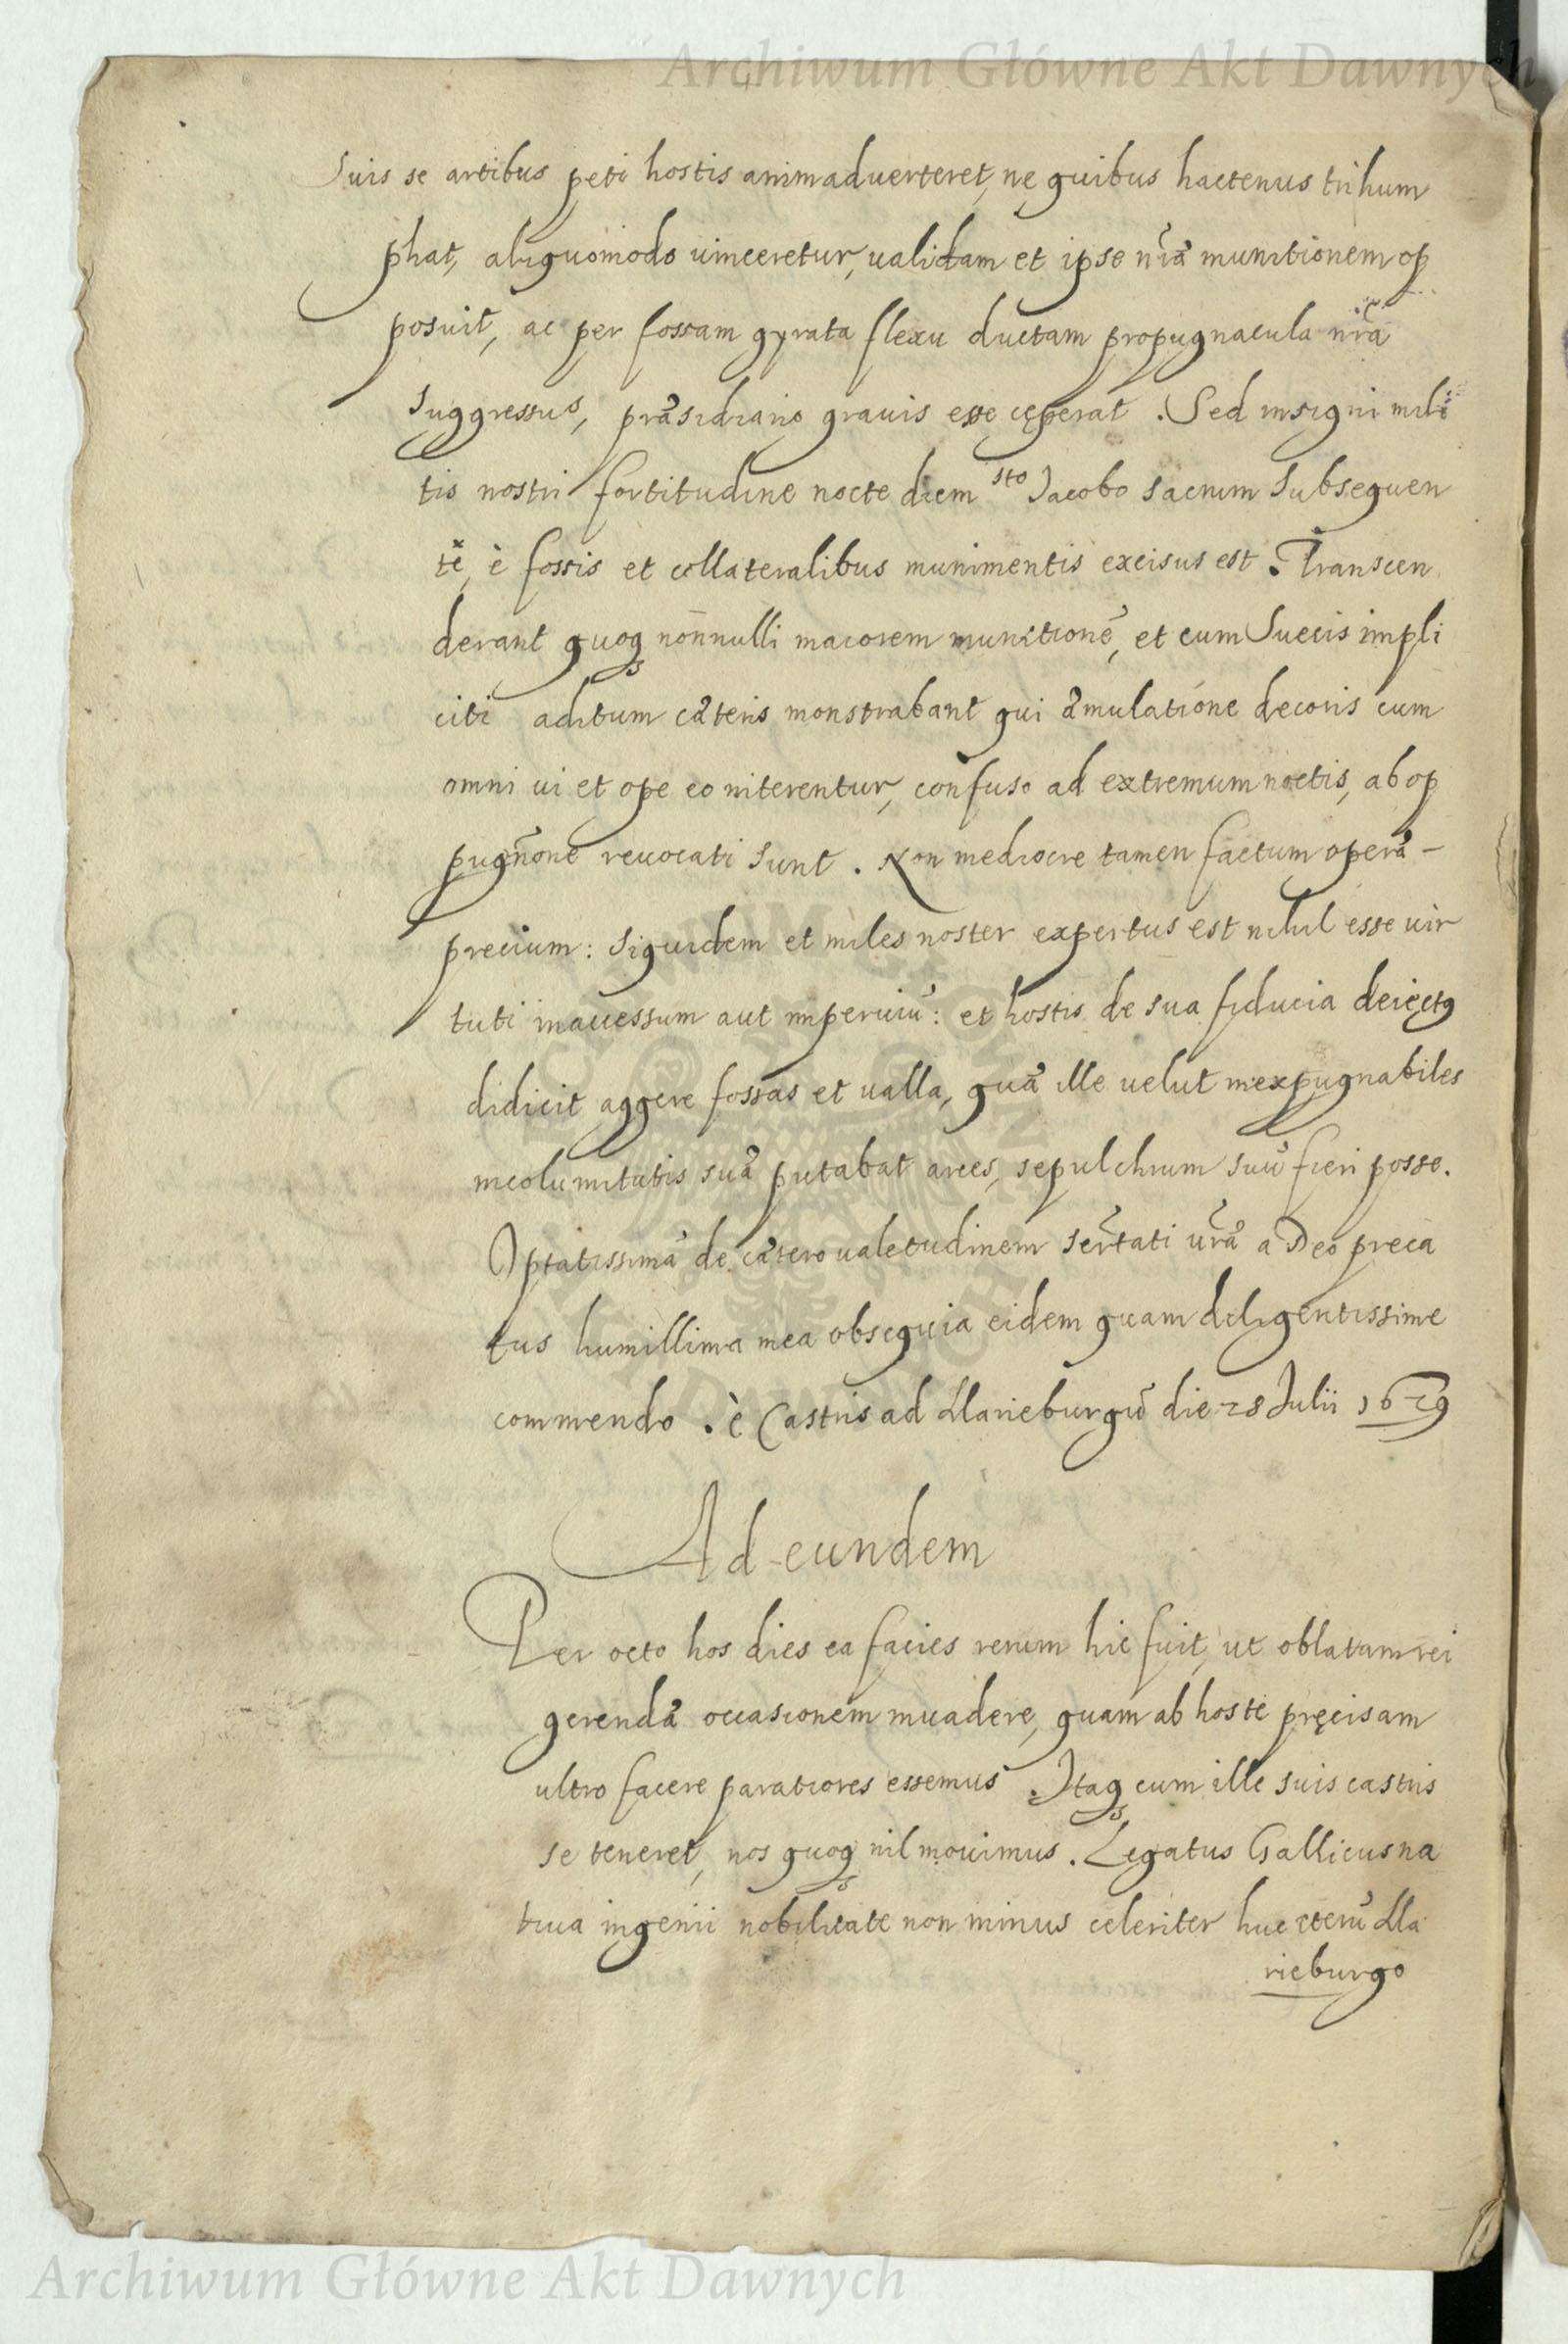 Archiwum Główne Akt Dawnych
suis se artibus peti hostis animadverteret, ne quibus hactenus trihum
phat, aliquomodo vinceretur, validam et ipse nr̃æ munitionem op
posuit, ac per fossam gyrata flexu ductam propugnacula nr̃a
suggressus, præsidiario gravis esse cęperat. Sed insigni mili
tis nostri fortitudine nocte diem sto Jacobo sacrum subsequen
tẽ, è fossis et collateralibus munimentis excisus est. Transcen
derant quoq nonnulli maiorem munitionẽ, et cum Suecis impli
citi aditum cæteris monstrabant qui æmulatione decoris cum
omni vi et ope eo niterentur, confuso ad extremum noctis, ab op
pugñone revocati sunt. Non mediocre tamen factum operæ-
precium: siquidem et miles noster expertus est nihil esse vir
tuti inaccessum aut imperviũ: et hostis de sua fiducia deiectꝯ
didicit aggere fossas et valla, quæ ille velut inexpugnabiles
incolumitatis suæ putabat arces, sepulchrum suũ fieri posse.
Optatissimã de cætero valetudinem Serñtati vr̃æ a Deo preca
tus humillima mea obsequia eidem quam diligentissime
commendo. è Castris ad Marieburgũ die 28 Julii 1629
Ad eundem
Per octo hos dies ea facies rerum hic fuit, ut oblatam rei
gerendæ occasionem invadere, quam ab hoste pręcisam
ultro facere paratiores essemus. Itaq cum ille suis castris
se teneret, nos quoq nil movimus. Legatus Gallicus na
tiva ingenii nobilitate non minus celeriter huc iterũ Ma
rieburgo
Archiwum Główne Akt Dawnych